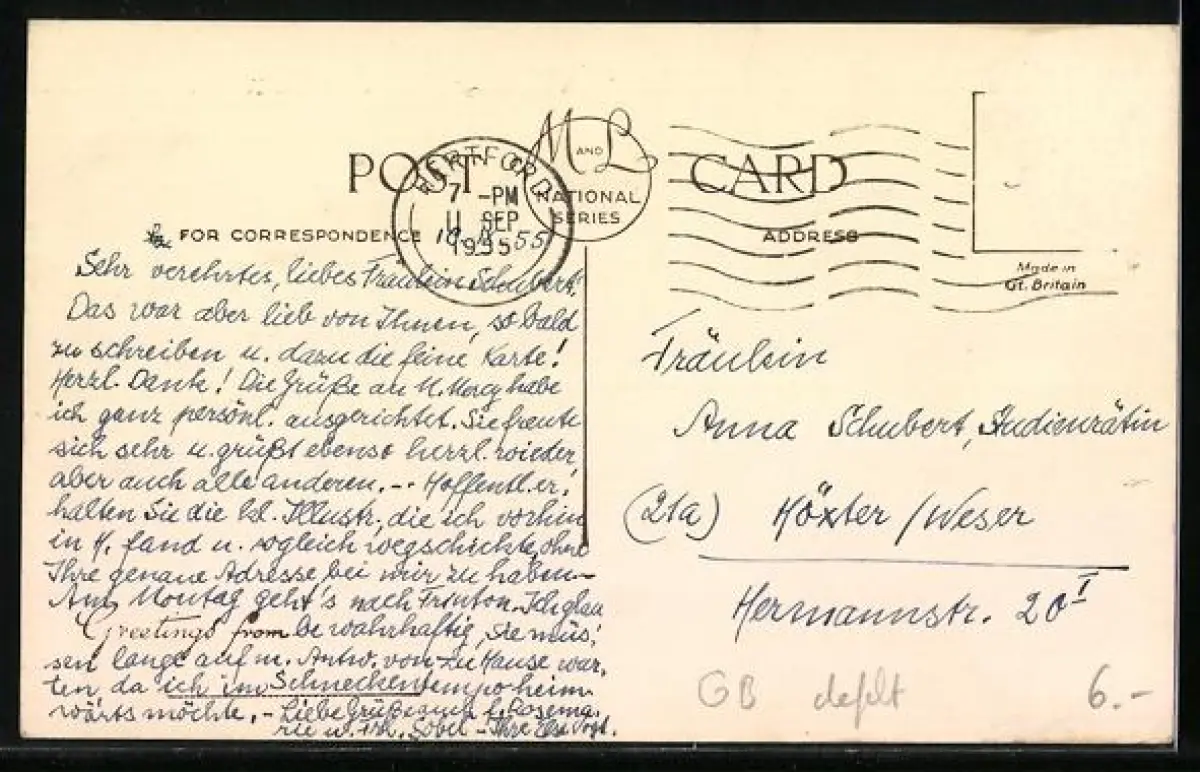 POST CARD
M AND L
NATIONAL
SERIES
HERTFORD
7 - PM
11 SEP
1955
FOR CORRESPONDENCE
ADDRESS
Made in
Gt. Britain
Sehr verehrtes, liebes Fräulein Schubert!
Das war aber lieb von Ihnen, so bald
zu schreiben u. dazu die feine Karte!
Herzl. Dank! Die Grüße an M. habe
ich ganz persönl. ausgerichtet. Sie freute
sich sehr u. grüßt ebenso herzl. wieder,
aber auch alle anderen. - Hoffentl. er-
halten Sie die Illustr., die ich vorhin
in H. fand u. sogleich wegschickte, ohne
Ihre genaue Adresse bei mir zu haben -
Am Montag geht's nach Frinton. Ich glau
Greetings from
be wahrhaftig, Sie müs-
sen lange auf m. Antw. von zu Hause war-
ten, da ich im Schneckentempo heim-
wärts möchte. - Liebe Grüße auch f. Rosema-
rie u. - Ihre Vogt.
Fräulein
Anna Schubert, Studienrätin
(21a) Höxter / Weser
Hermannstr. 20 I
GB 6.-